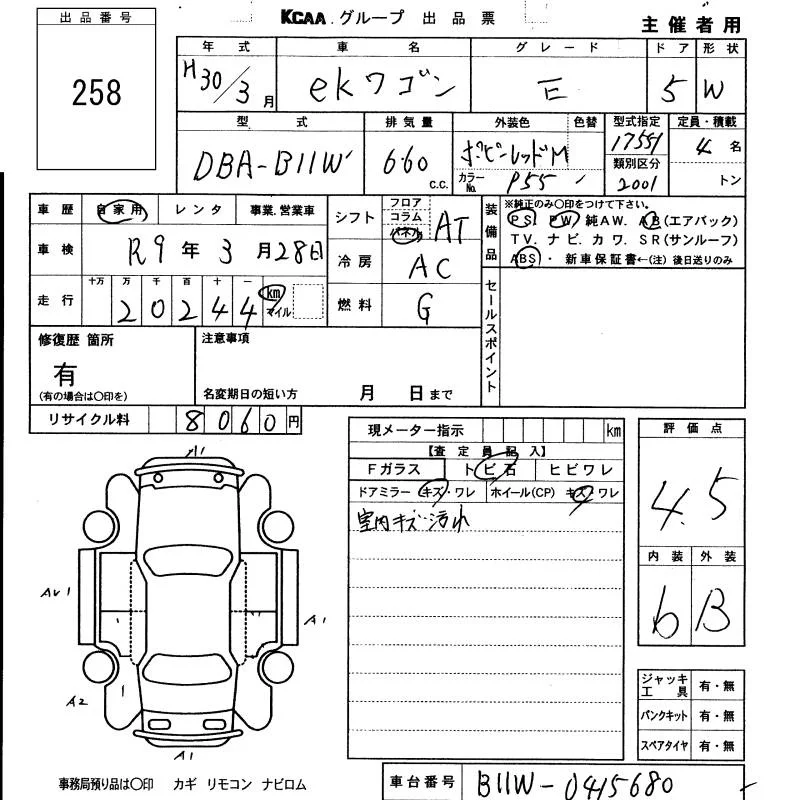 出品番号
258
KCAA.グループ 出品票
主催者用
年式 車名 グレード ドア 形状
H30/3月 ekワゴン E 5 W
型式 排気量 外装色 色替 型式指定 定員・積載
DBA-B11W 660 c.c. ボビーレッドM 17551 4名
カラーNo. P55 類別区分 2001 トン
車歴 自家用 レンタ 事業.営業車
車検 R9年3月28日
走行 十万 万 千 百 十 一
20244 km マイル
シフト フロア コラム パネル AT
冷房 AC
燃料 G
装備品
※純正のみ〇印をつけて下さい。
PS. PW. 純AW. AB(エアバック)
TV. ナビ. カワ. SR(サンルーフ)
ABS・ 新車保証書←(注)後日送りのみ
セールスポイント
修復歴 箇所
有
(有の場合は〇印を)
注意事項
名変期日の短い方 月 日まで
リサイクル料 8060円
現メーター指示 km
【査定員記入】
Fガラス トビ石 ヒビワレ
ドアミラー キズ・ワレ ホイール(CP) キズ・ワレ
室内キズ汚れ
評価点
4.5
内装 外装
b B
A1
AU1
A1
A2
A1
ジャッキ工具 有・無
パンクキット 有・無
スペアタイヤ 有・無
事務局預り品は〇印 カギ リモコン ナビロム
車台番号 B11W-0415680